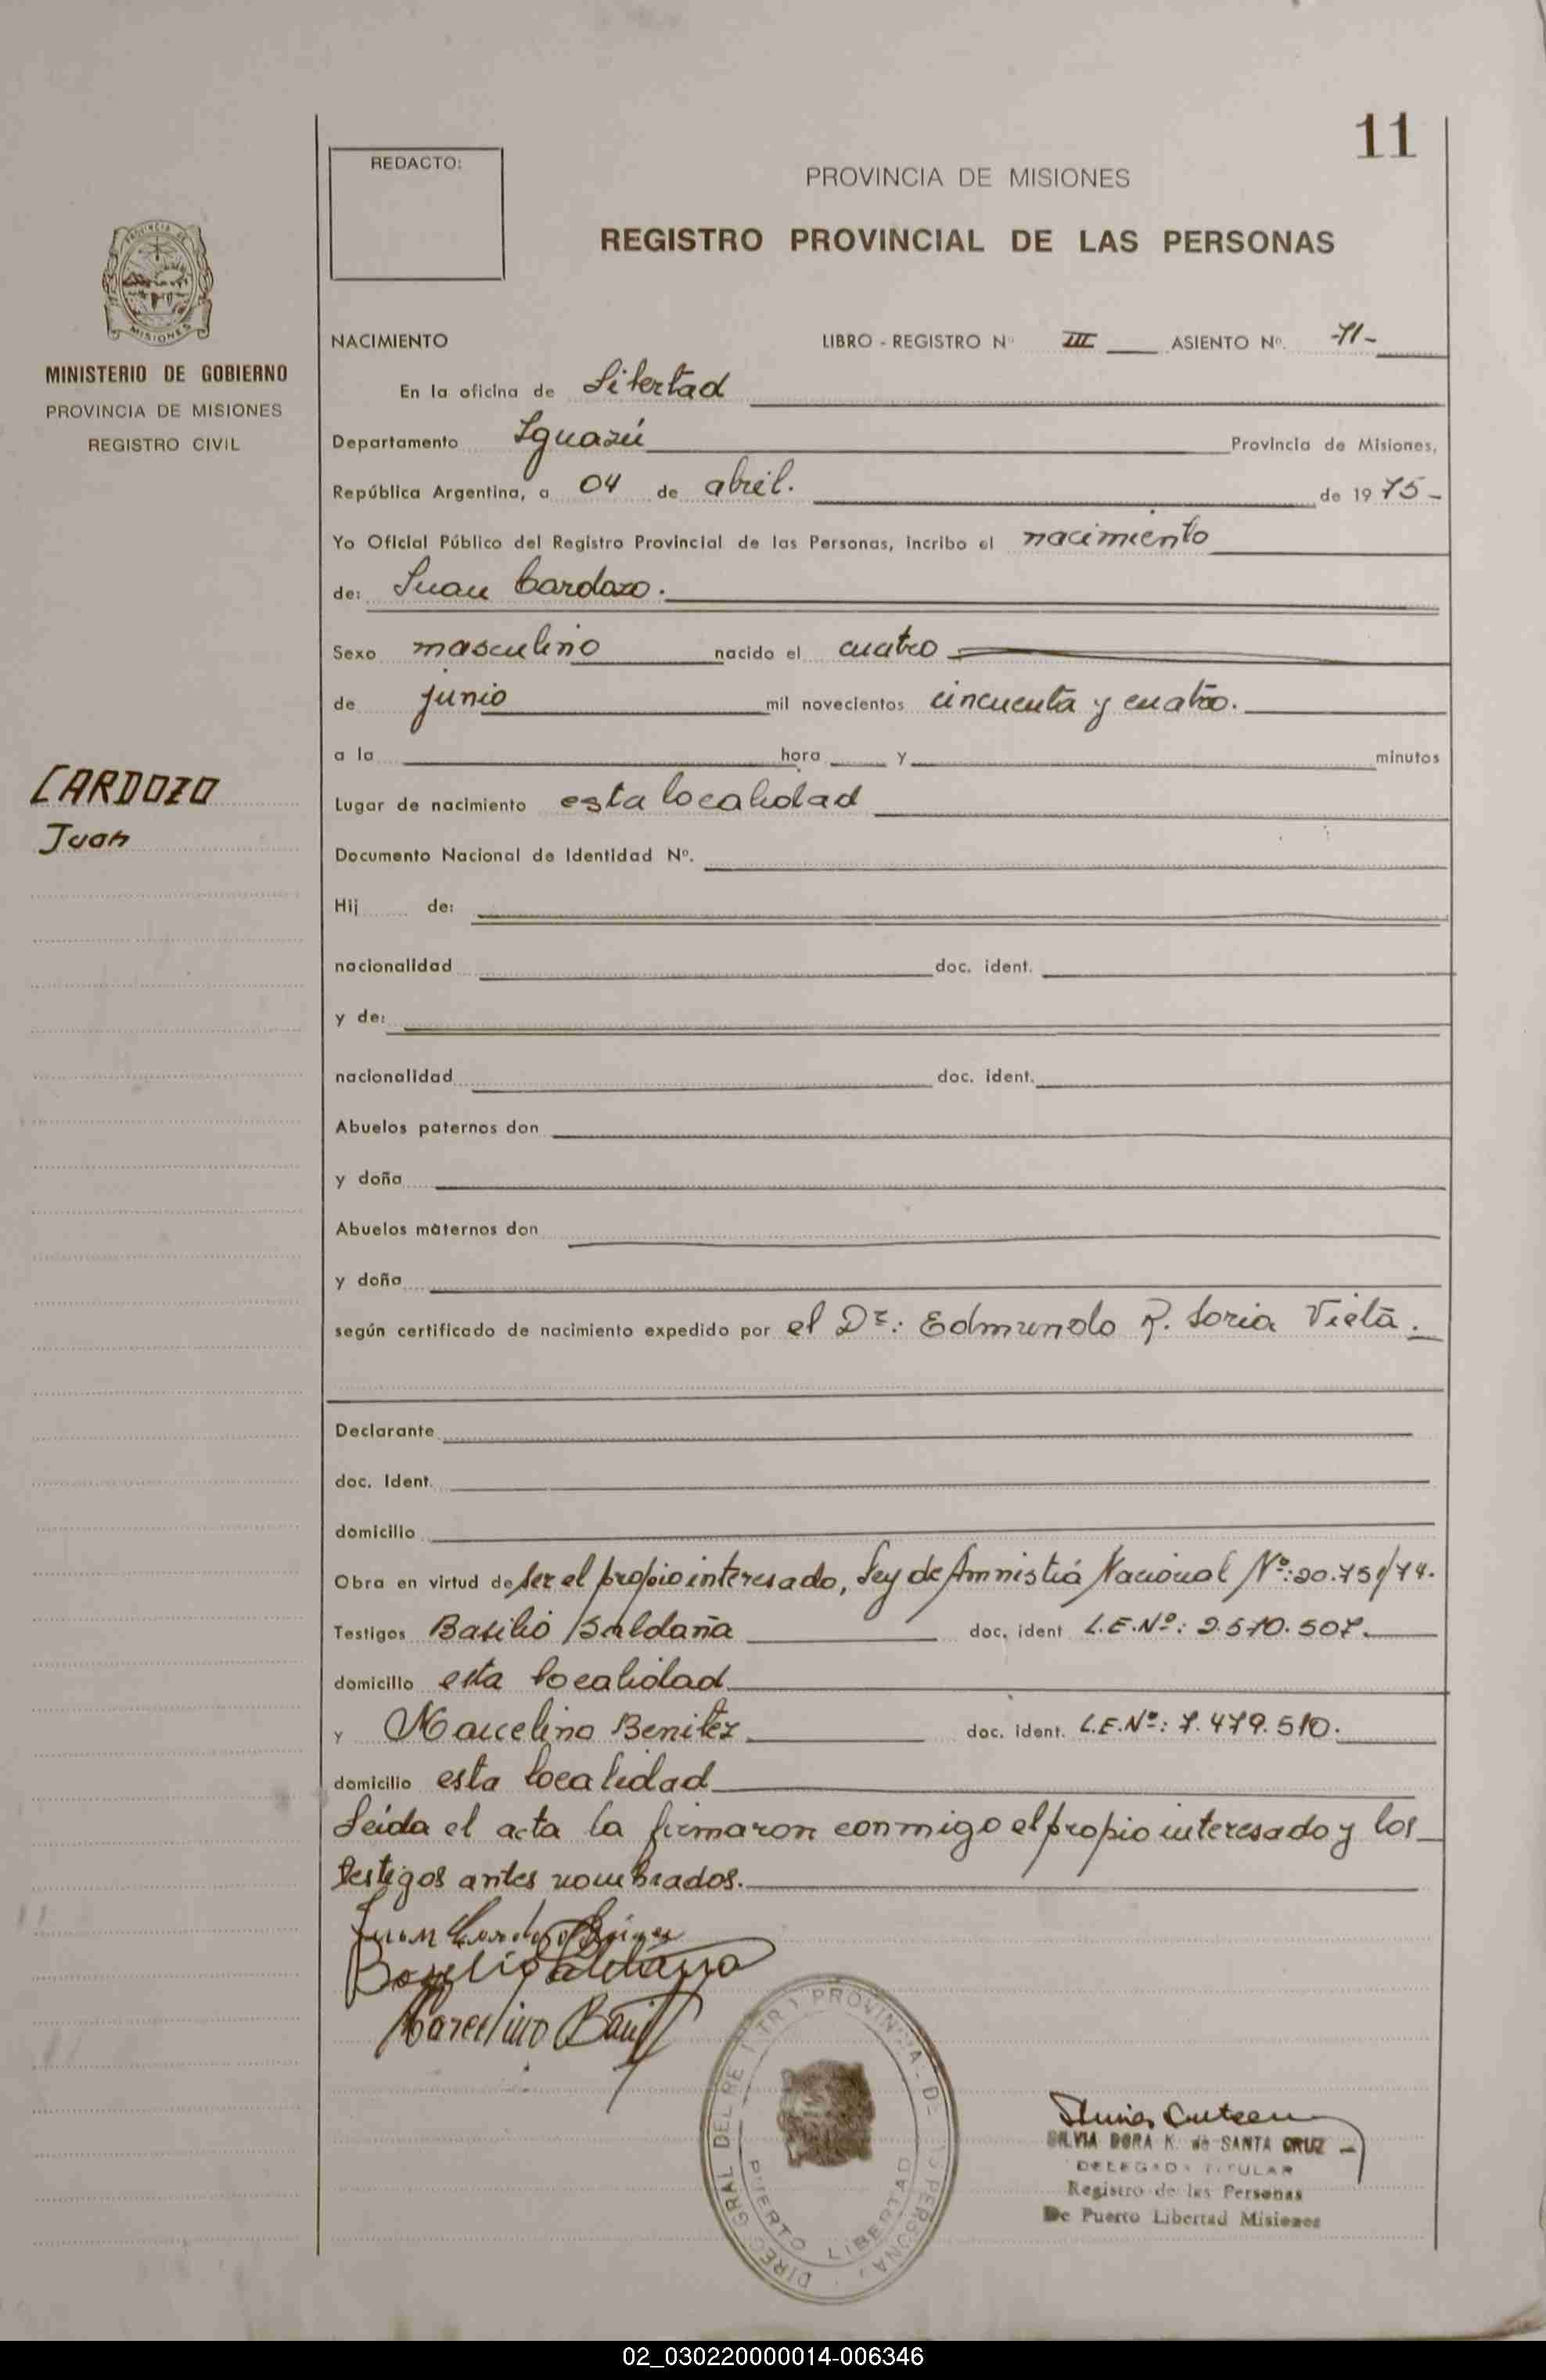 11
REDACTO:
PROVINCIA DE MISIONES
REGISTRO PROVINCIAL DE LAS PERSONAS
MISIONES
MINISTERIO DE GOBIERNO
PROVINCIA DE MISIONES
REGISTRO CIVIL
NACIMIENTO LIBRO - REGISTRO Nº III ASIENTO Nº. -11-
En la oficina de Libertad
Departamento Iguazú Provincia de Misiones,
República Argentina, a 04 de abril. de 1975-
Yo Oficial Público del Registro Provincial de las Personas, incribo el nacimiento
de: Juan Cardozo.
Sexo masculino nacido el cuatro
de junio mil novecientos cincuenta y cuatro.
a la hora y minutos
CARDOZO
Juan
Lugar de nacimiento esta localidad
Documento Nacional de Identidad Nº.
Hij de:
nacionalidad doc. ident.
y de:
nacionalidad doc. ident.
Abuelos paternos don
y doña
Abuelos maternos don
y doña
según certificado de nacimiento expedido por el Dr.: Edmundo R. Soria Vieta.
Declarante
doc. Ident.
domicilio
Obra en virtud de ser el propio interesado, Ley de Amnistiá Nacional Nº:20.751/74.
Testigos Basilio Saldaña doc. ident L.E.Nº: 2.570.507.
domicilio esta localidad
y Marcelino Benitez doc. ident. L.E.Nº: 7.479.510.
domicilio esta localidad
Leída el acta la firmaron conmigo el propio interesado y los
testigos antes nombrados.
Juan Cardozo
Basilio Saldaña
Marcelino
DIREC. GRAL DEL REGISTRO PROVINCIAL DE LAS PERSONAS
PUERTO LIBERTAD
SILVIA DORA K. de SANTA CRUZ
DELEGADA TITULAR
Registro de las Personas
De Puerto Libertad Misiones
02_030220000014-006346